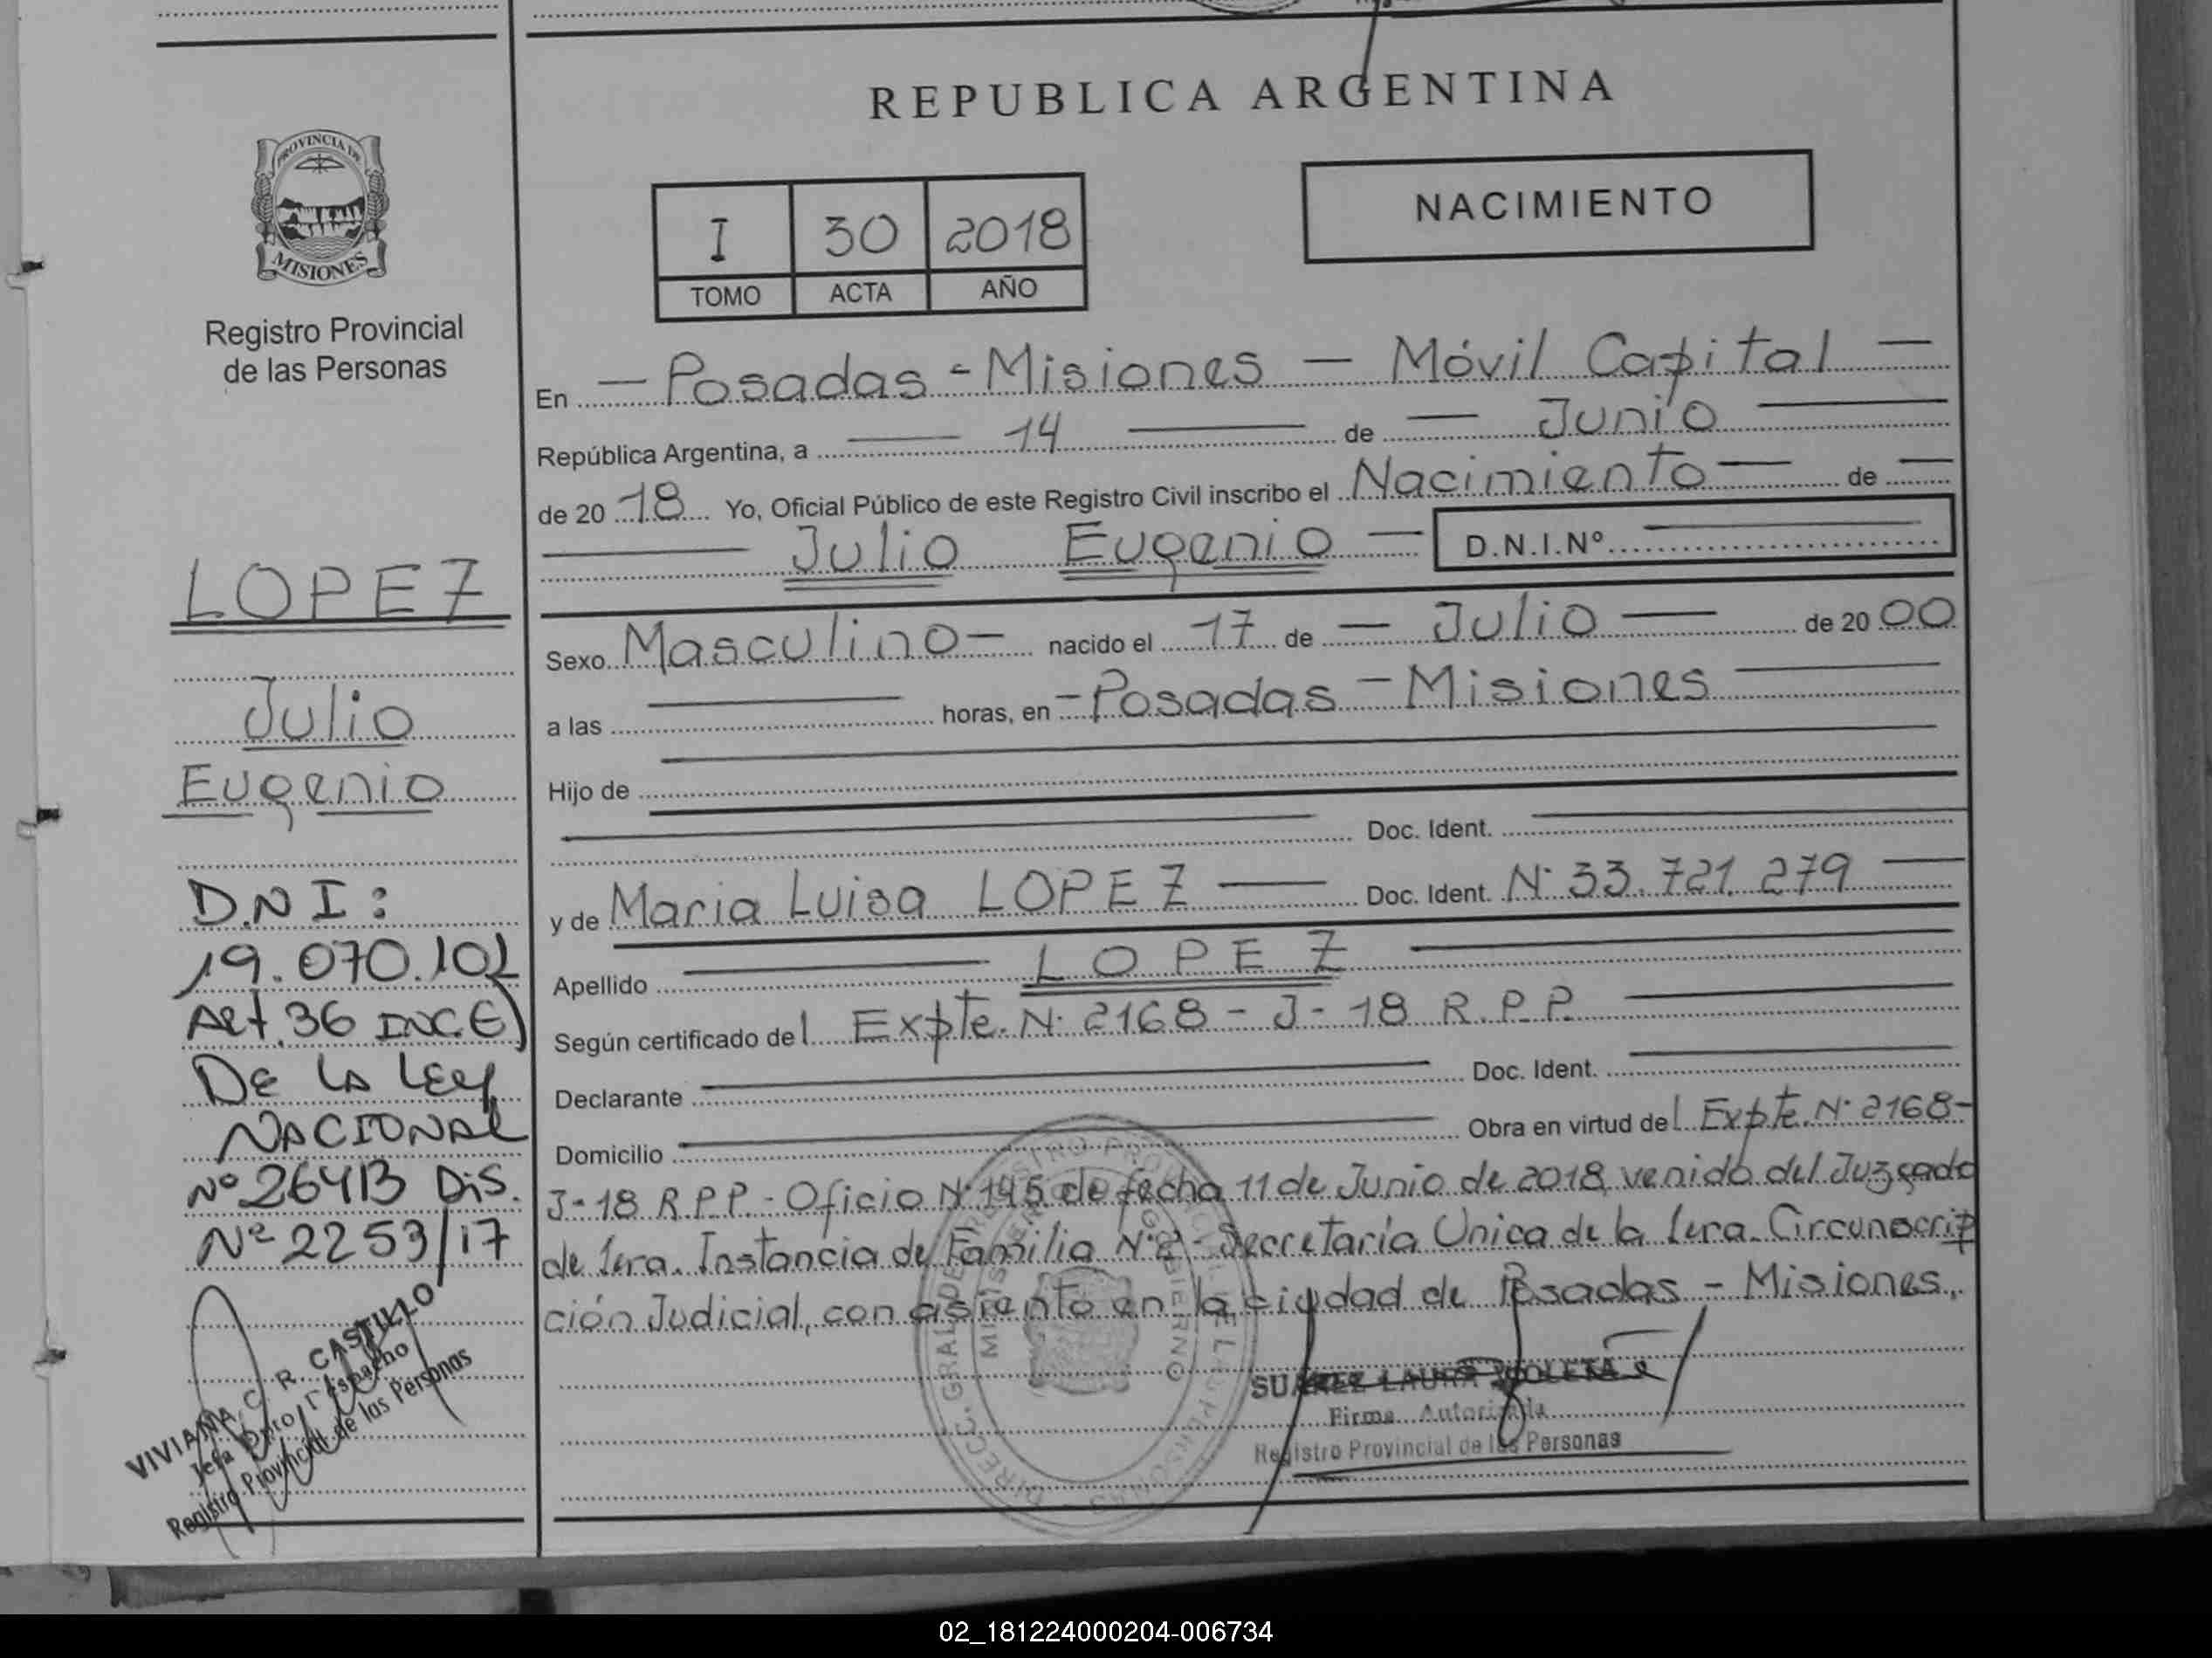 REPUBLICA ARGENTINA
PROVINCIA DE
MISIONES
Registro Provincial
de las Personas
I 30 2018
TOMO ACTA AÑO
NACIMIENTO
En — Posadas - Misiones — Móvil Capital —
República Argentina, a — 14 — de — Junio —
de 20 18 Yo, Oficial Público de este Registro Civil inscribo el Nacimiento — de —
— Julio Eugenio — D.N.I.Nº —
Sexo Masculino — nacido el 17 de — Julio — de 20 00
a las — horas, en - Posadas - Misiones —
Hijo de —
— Doc. Ident. —
y de Maria Luisa LOPEZ — Doc. Ident. Nº 33.721.279 —
Apellido — LOPEZ —
Según certificado del Expte. Nº 2168 - J - 18 R.P.P. —
Declarante — Doc. Ident. —
Domicilio — Obra en virtud del Expte. Nº 2168-
J-18 R.P.P.- Oficio Nº 145 de fecha 11 de Junio de 2018, venido del Juzgado
de 1era. Instancia de Familia Nº 2 - Secretaría Unica de la 1era. Circunscrip
ción Judicial, con asiento en la ciudad de Posadas - Misiones.
SUAREZ LAURA VIOLETA
Firma Autorizada
Registro Provincial de las Personas
LOPEZ
Julio
Eugenio
D.N I:
19.070.102
Art.36 INC.E)
DE LA LEY
NACIONAL
Nº 26413 DiS.
Nº 2253/17
VIVIANA C. R. CASTILLO
Jefa Dpto Despacho
Registro Provincial de las Personas
02_181224000204-006734